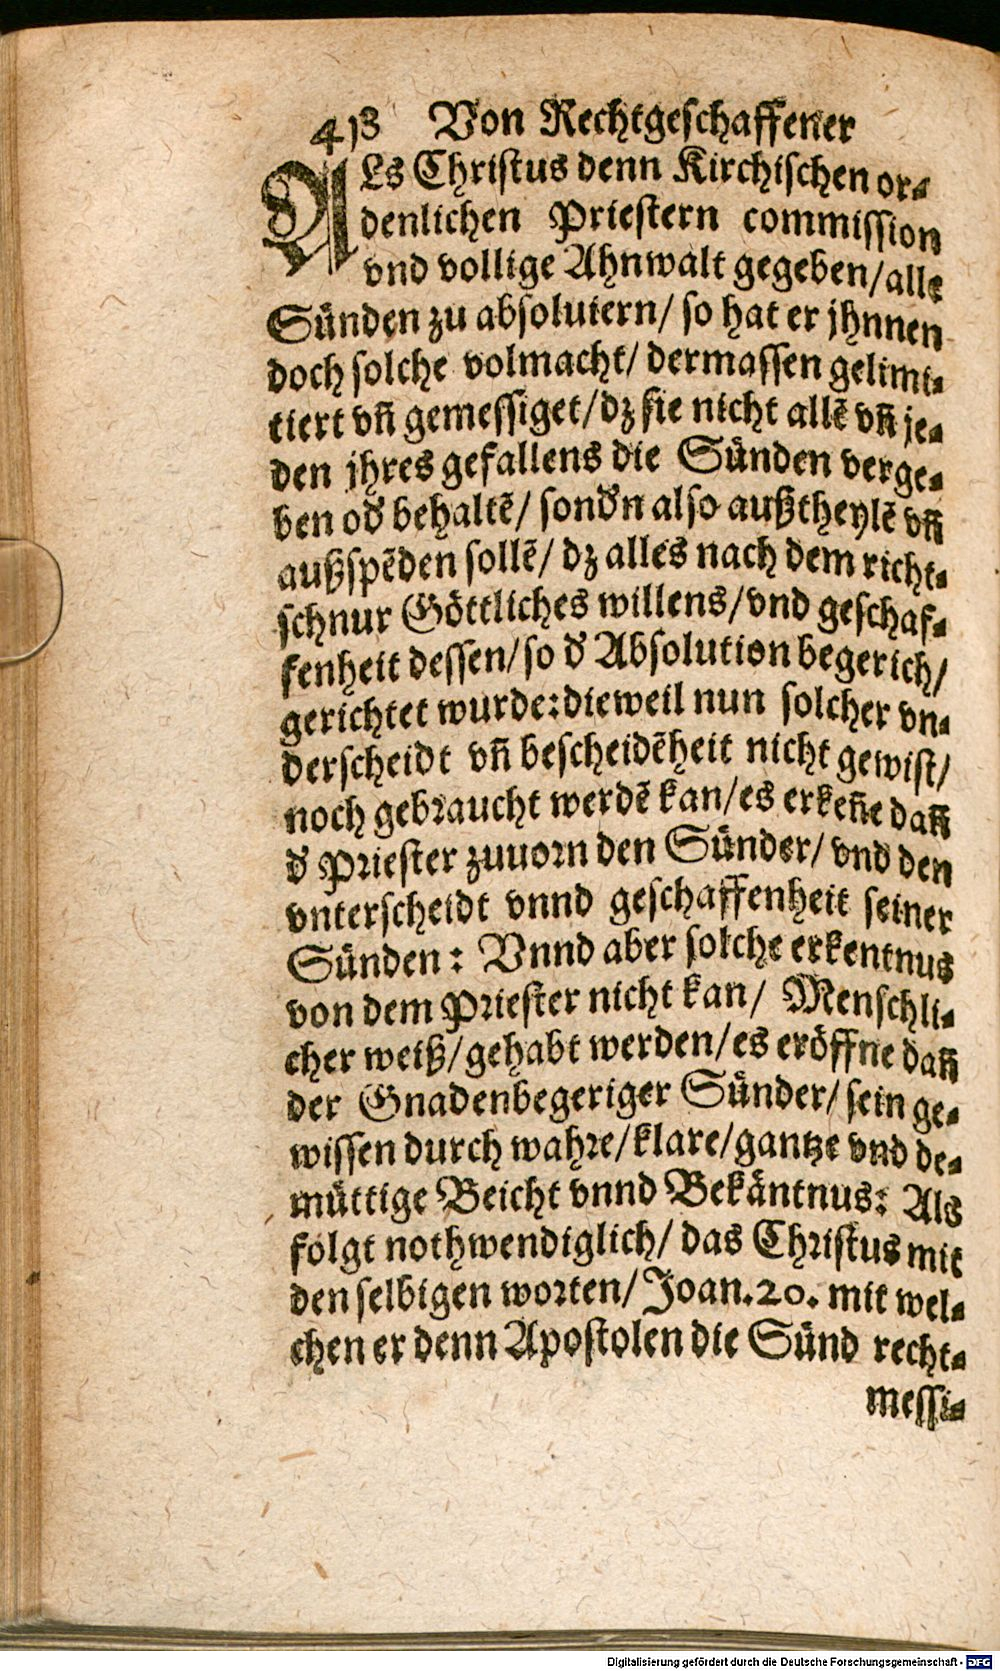 413 Von Rechtgeschaffener
ALs Christus denn Kirchischen or-
denlichen Priestern commission
vnd vollige Ahnwalt gegeben/alle
Sünden zu absolutern/ so hat er jhnnen
doch solche volmacht/ dermassen gelimi-
tiert vñ gemessiget/dz sie nicht allẽ vñ je-
den jhres gefallens die Sünden verge-
ben od' behaltẽ/ sond'n also außtheylẽ vñ
außspẽden sollẽ/ dz alles nach dem richt-
schnur Göttliches willens/vnd geschaf-
fenheit dessen/so d' Absolution begerich/
gerichtet wurde:dieweil nun solcher vn-
derscheidt vñ bescheidẽheit nicht gewist/
noch gebraucht werdẽ kan/es erkeñe dañ
d' Priester zuuorn den Sünder/ vnd den
vnterscheidt vnnd geschaffenheit seiner
Sünden: Vnnd aber solche erkentnus
von dem Priester nicht kan/ Menschli-
cher weiß/gehabt werden/es eröffne dañ
der Gnadenbegeriger Sünder/ sein ge-
wissen durch wahre/klare/gantze vnd de-
müttige Beicht vnnd Bekäntnus: Als
folgt nothwendiglich/ das Christus mit
den selbigen worten/ Joan.20. mit wel-
chen er denn Apostolen die Sünd recht-
messi-
Digitalisierung gefördert durch die Deutsche Forschungsgemeinschaft - DFG